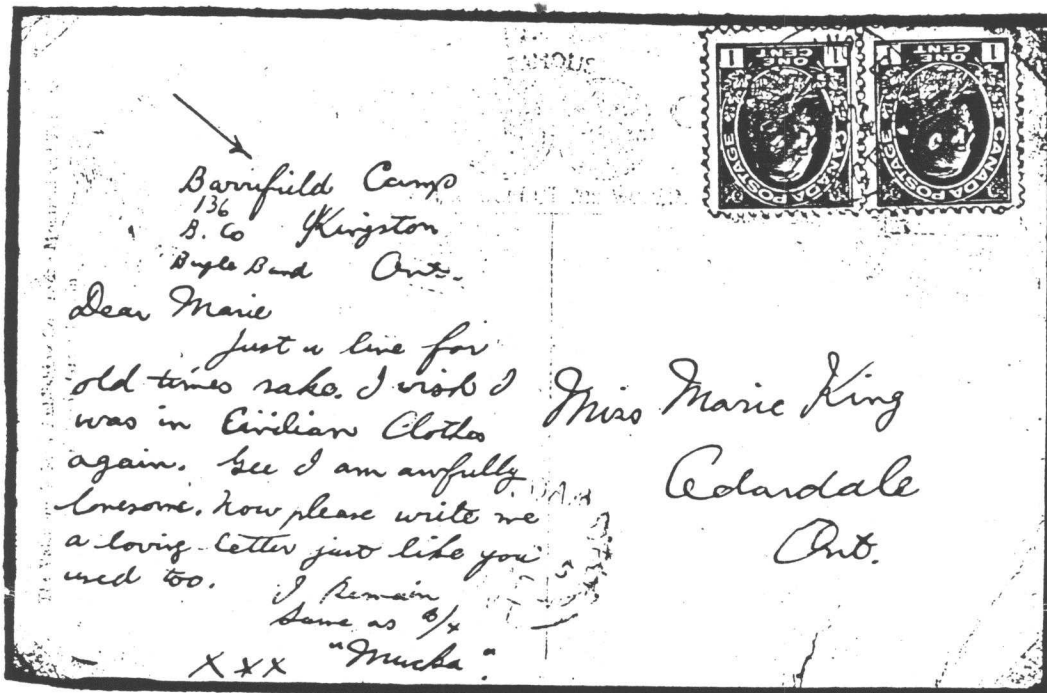 Barriefield Camp
136
B. Co Kingston
Bugle Band Ont.
Dear Marie
Just a line for
old times sake. I wish I
was in Civilian Clothes
again. Gee I am awfully
lonesome. Now please write me
a loving letter just like you
used too.
I Remain
Same as
"Mucka"
XXX
Miss Marie King
Cedardale
Ont.
1 ONE CENT 1
CANADA POSTAGE
1 ONE CENT 1
CANADA POSTAGE